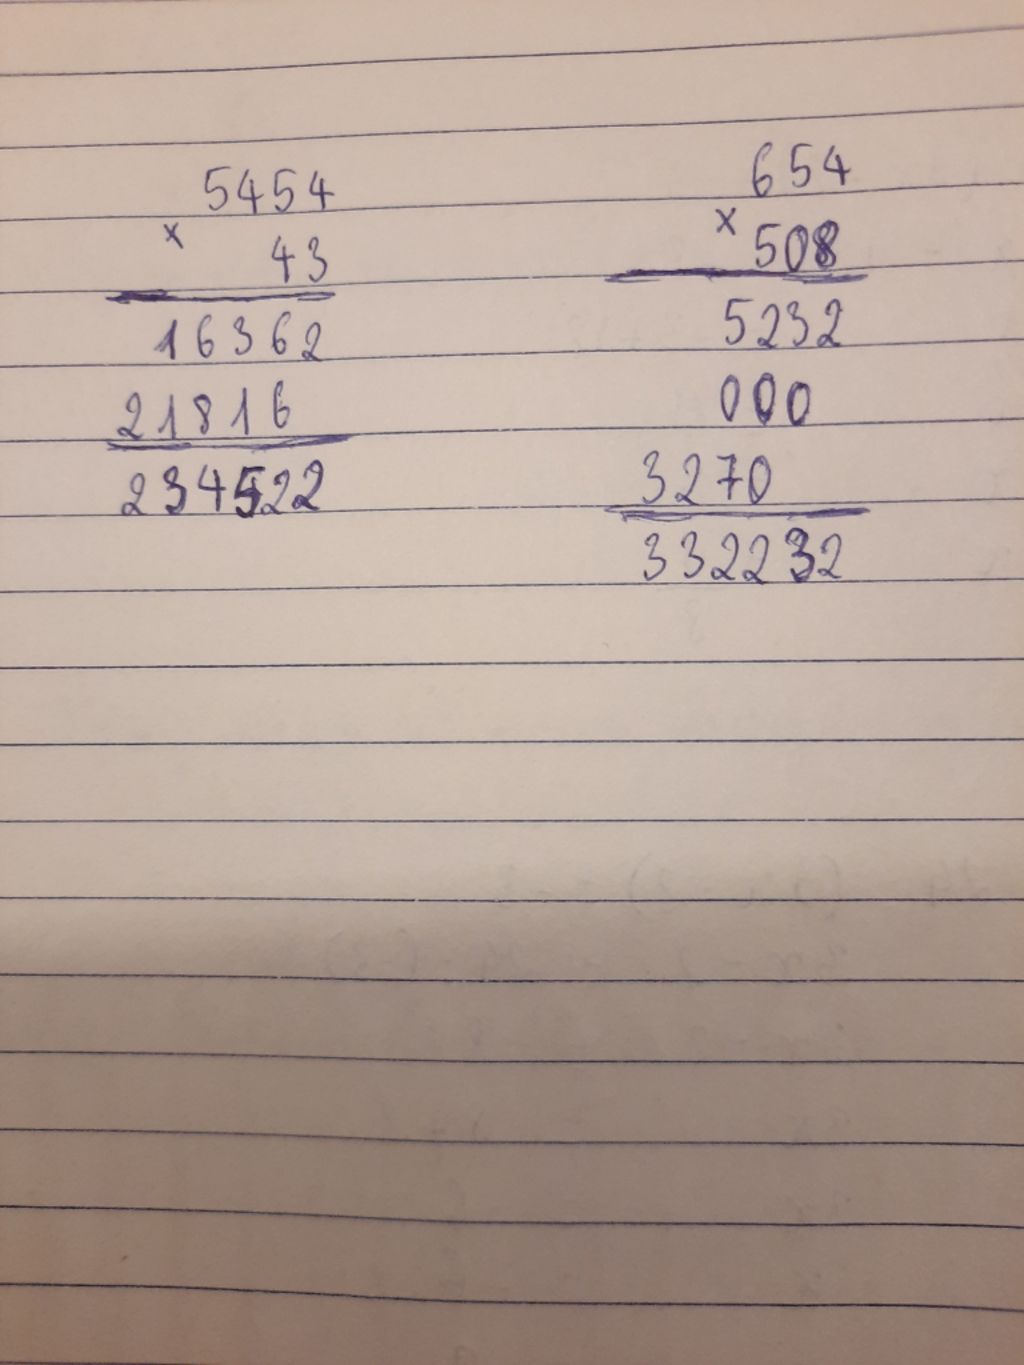 5454
x 43
16362
21816
234522
654
x 508
5232
000
3270
332232